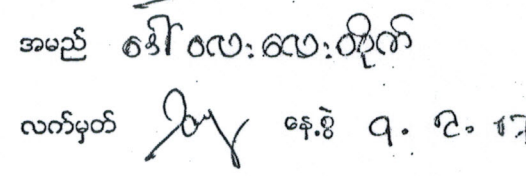 အမည် ဒေါ်လေးလေးတိုက်
လက်မှတ် နေ့စွဲ ၇. ၃. ၁၃